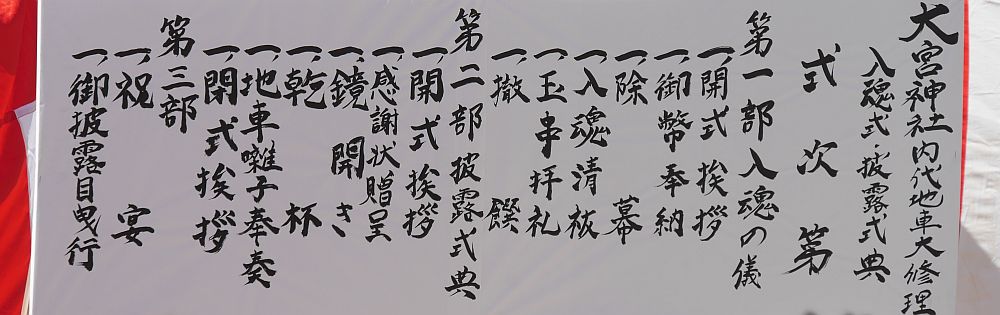 大宮神社内代地車大修理
入魂式・披露式典
式次第
第一部入魂の儀
一、開式挨拶
一、御幣奉納
一、除幕
一、入魂清祓
一、玉串拝礼
一、撤饌
第二部披露式典
一、開式挨拶
一、感謝状贈呈
一、鏡開き
一、乾杯
一、地車囃子奉奏
一、閉式挨拶
第三部
一、祝宴
一、御披露目曳行